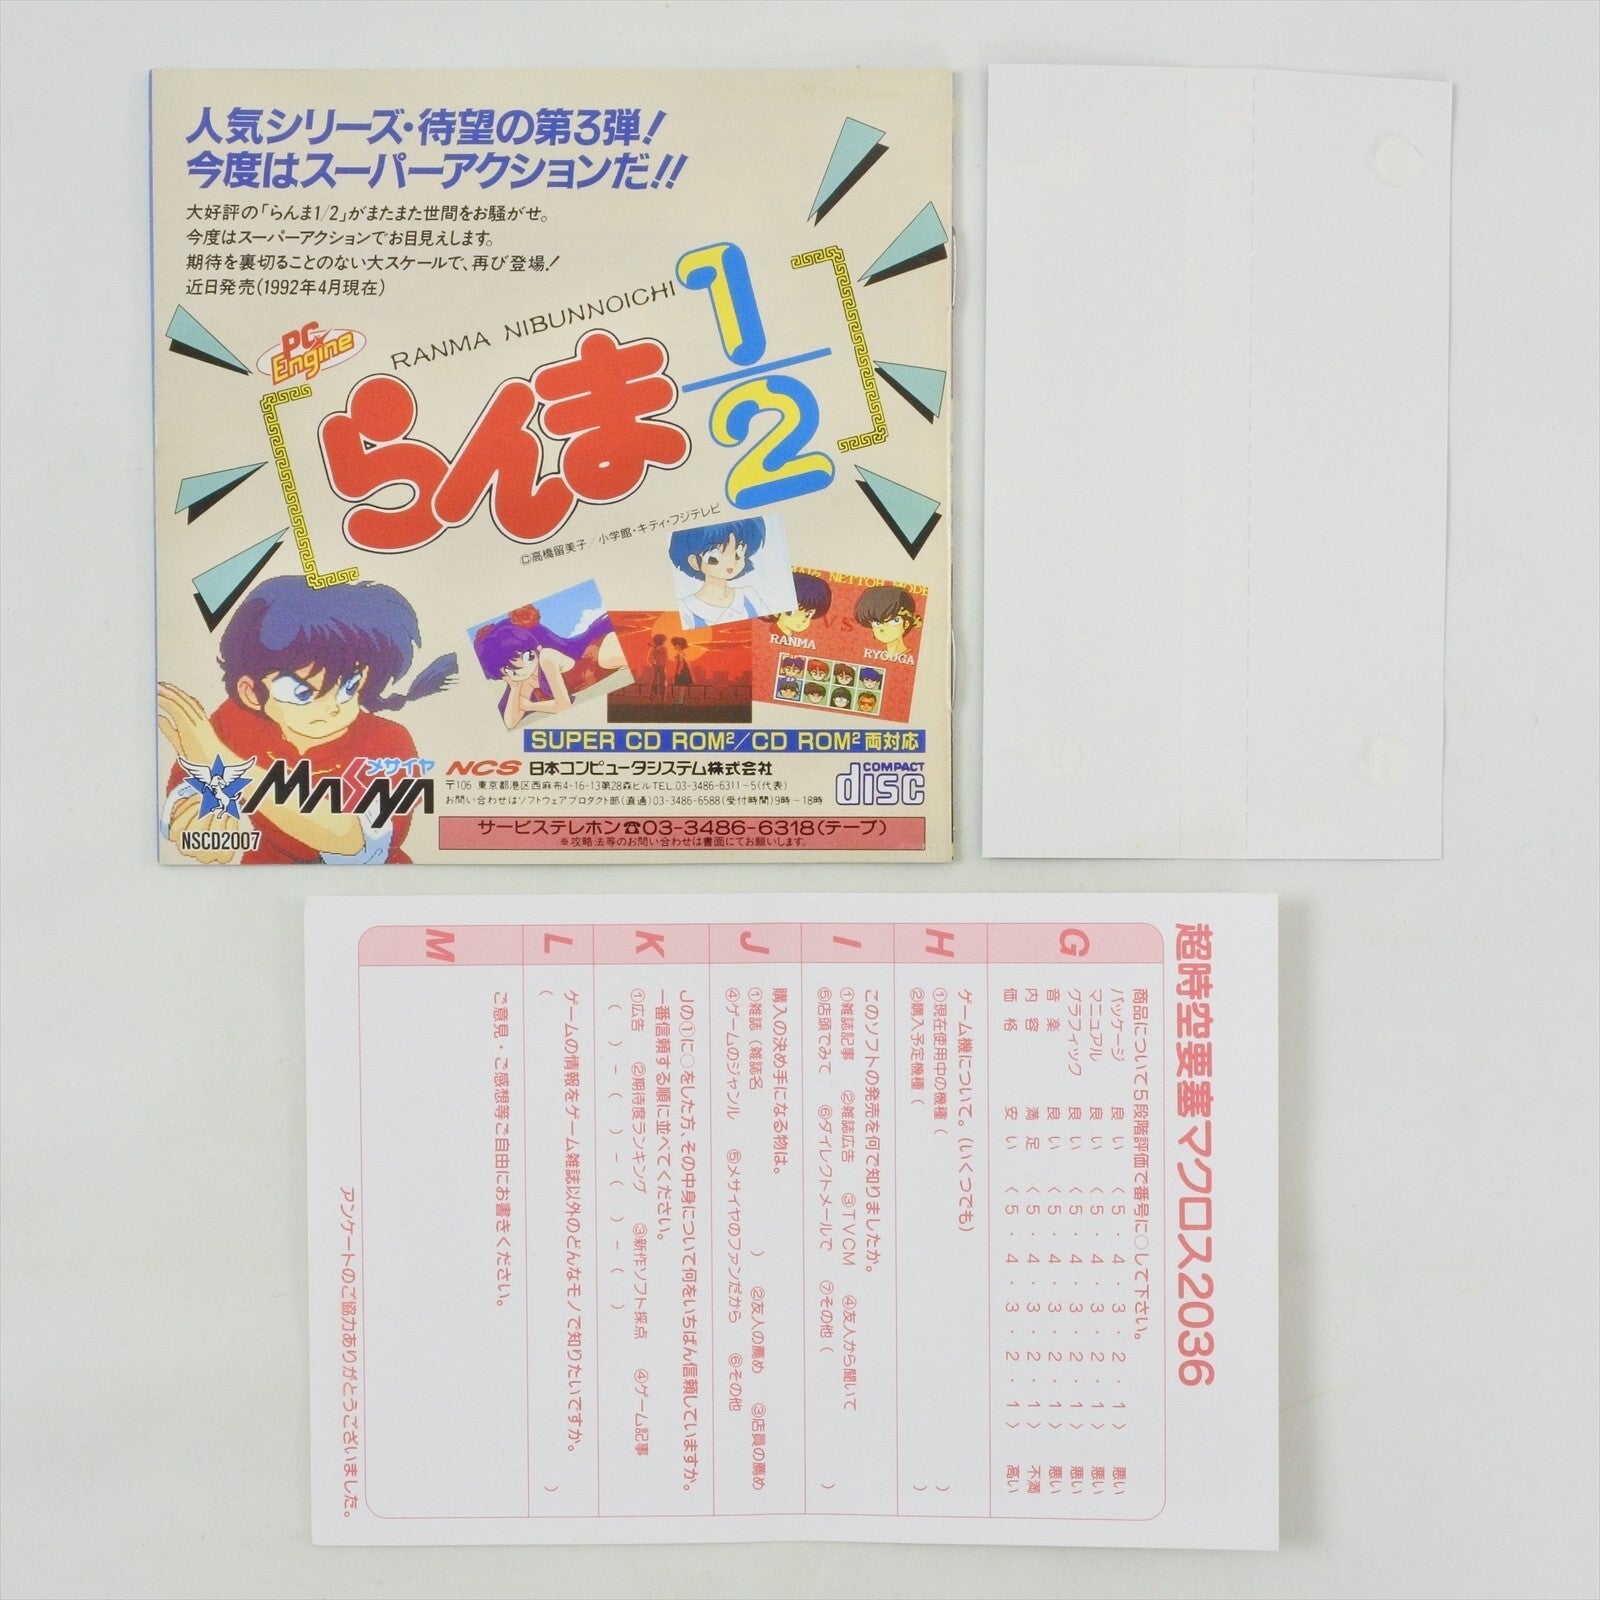 人気シリーズ・待望の第3弾!
今度はスーパーアクションだ!!
大好評の「らんま1/2」がまたまた世間をお騒がせ。
今度はスーパーアクションでお目見えします。
期待を裏切ることのない大スケールで、再び登場!
近日発売(1992年4月現在)
PC Engine
RANMA NIBUNNOICHI
らんま1/2
©高橋留美子/小学館・キティ・フジテレビ
RANMA
VS
RYOUGA
SUPER CD ROM²/CD ROM² 両対応
メサイヤ
MASAYA
NSCD2007
NCS 日本コンピュータシステム株式会社
〒106 東京都港区西麻布4-16-13第28森ビルTEL.03-3486-6311~5(代表)
お問い合わせはソフトウェアプロダクト部(直通)03-3486-6588(受付時間)9時~18時
COMPACT disc
サービステレホン☎03-3486-6318(テープ)
※攻略法等のお問い合わせは書面にてお願いします。
超時空要塞マクロス2036
G
商品について5段階評価で番号に○して下さい。
パッケージ 良い 〈5・4・3・2・1〉 悪い
マニュアル 良い 〈5・4・3・2・1〉 悪い
グラフィック 良い 〈5・4・3・2・1〉 悪い
音楽 良い 〈5・4・3・2・1〉 悪い
内容 満足 〈5・4・3・2・1〉 不満
価格 安い 〈5・4・3・2・1〉 高い
H
ゲーム機について。(いくつでも)
①現在使用中の機種( )
②購入予定機種( )
I
このソフトの発売を何で知りましたか。
①雑誌記事 ②雑誌広告 ③TVCM ④友人から聞いて
⑤店頭でみて ⑥ダイレクトメールで ⑦その他( )
J
購入の決め手になる物は。
①雑誌(雑誌名 ) ②友人の薦め ③店員の薦め
④ゲームのジャンル ⑤メサイヤのファンだから ⑥その他
K
Jの①に○をした方、その中身について何をいちばん信頼していますか。
一番信頼する順に並べてください。
①広告 ②期待度ランキング ③新作ソフト採点 ④ゲーム記事
( )-( )-( )-( )
L
ゲームの情報をゲーム雑誌以外のどんなモノで知りたいですか。
( )
M
ご意見・ご感想等ご自由にお書きください。
アンケートのご協力ありがとうございました。